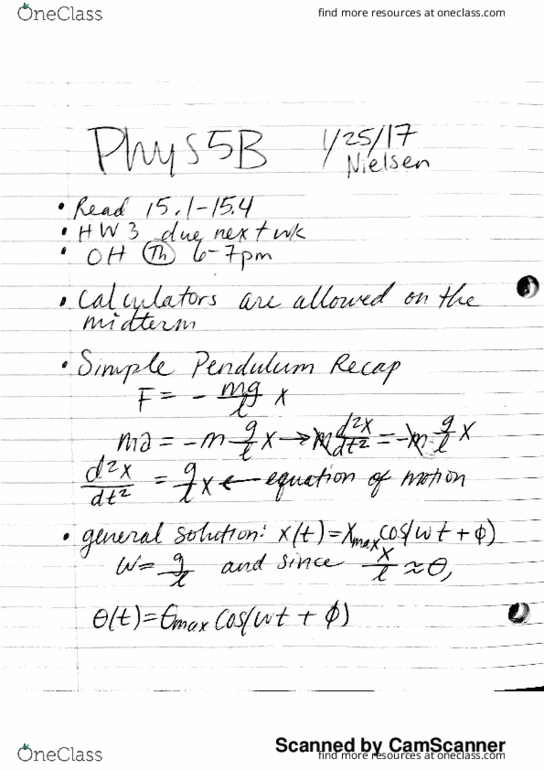 OneClass find more resources at oneclass.com
Phys5B 1/25/17
Nielsen
• Read 15.1-15.4
• HW3 due next wk
• OH Th 6-7pm
• Calculators are allowed on the
midterm
• Simple Pendulum Recap
F = - mg/l x
ma = -m g/l x → m d²x/dt² = -m g/l x
d²x/dt² = g/l x ← equation of motion
• general solution: x(t)=Xmax cos(wt + ϕ)
w = g/l and since x/l ≈ θ,
θ(t)=θmax cos(wt + ϕ)
Scanned by CamScanner
OneClass find more resources at oneclass.com